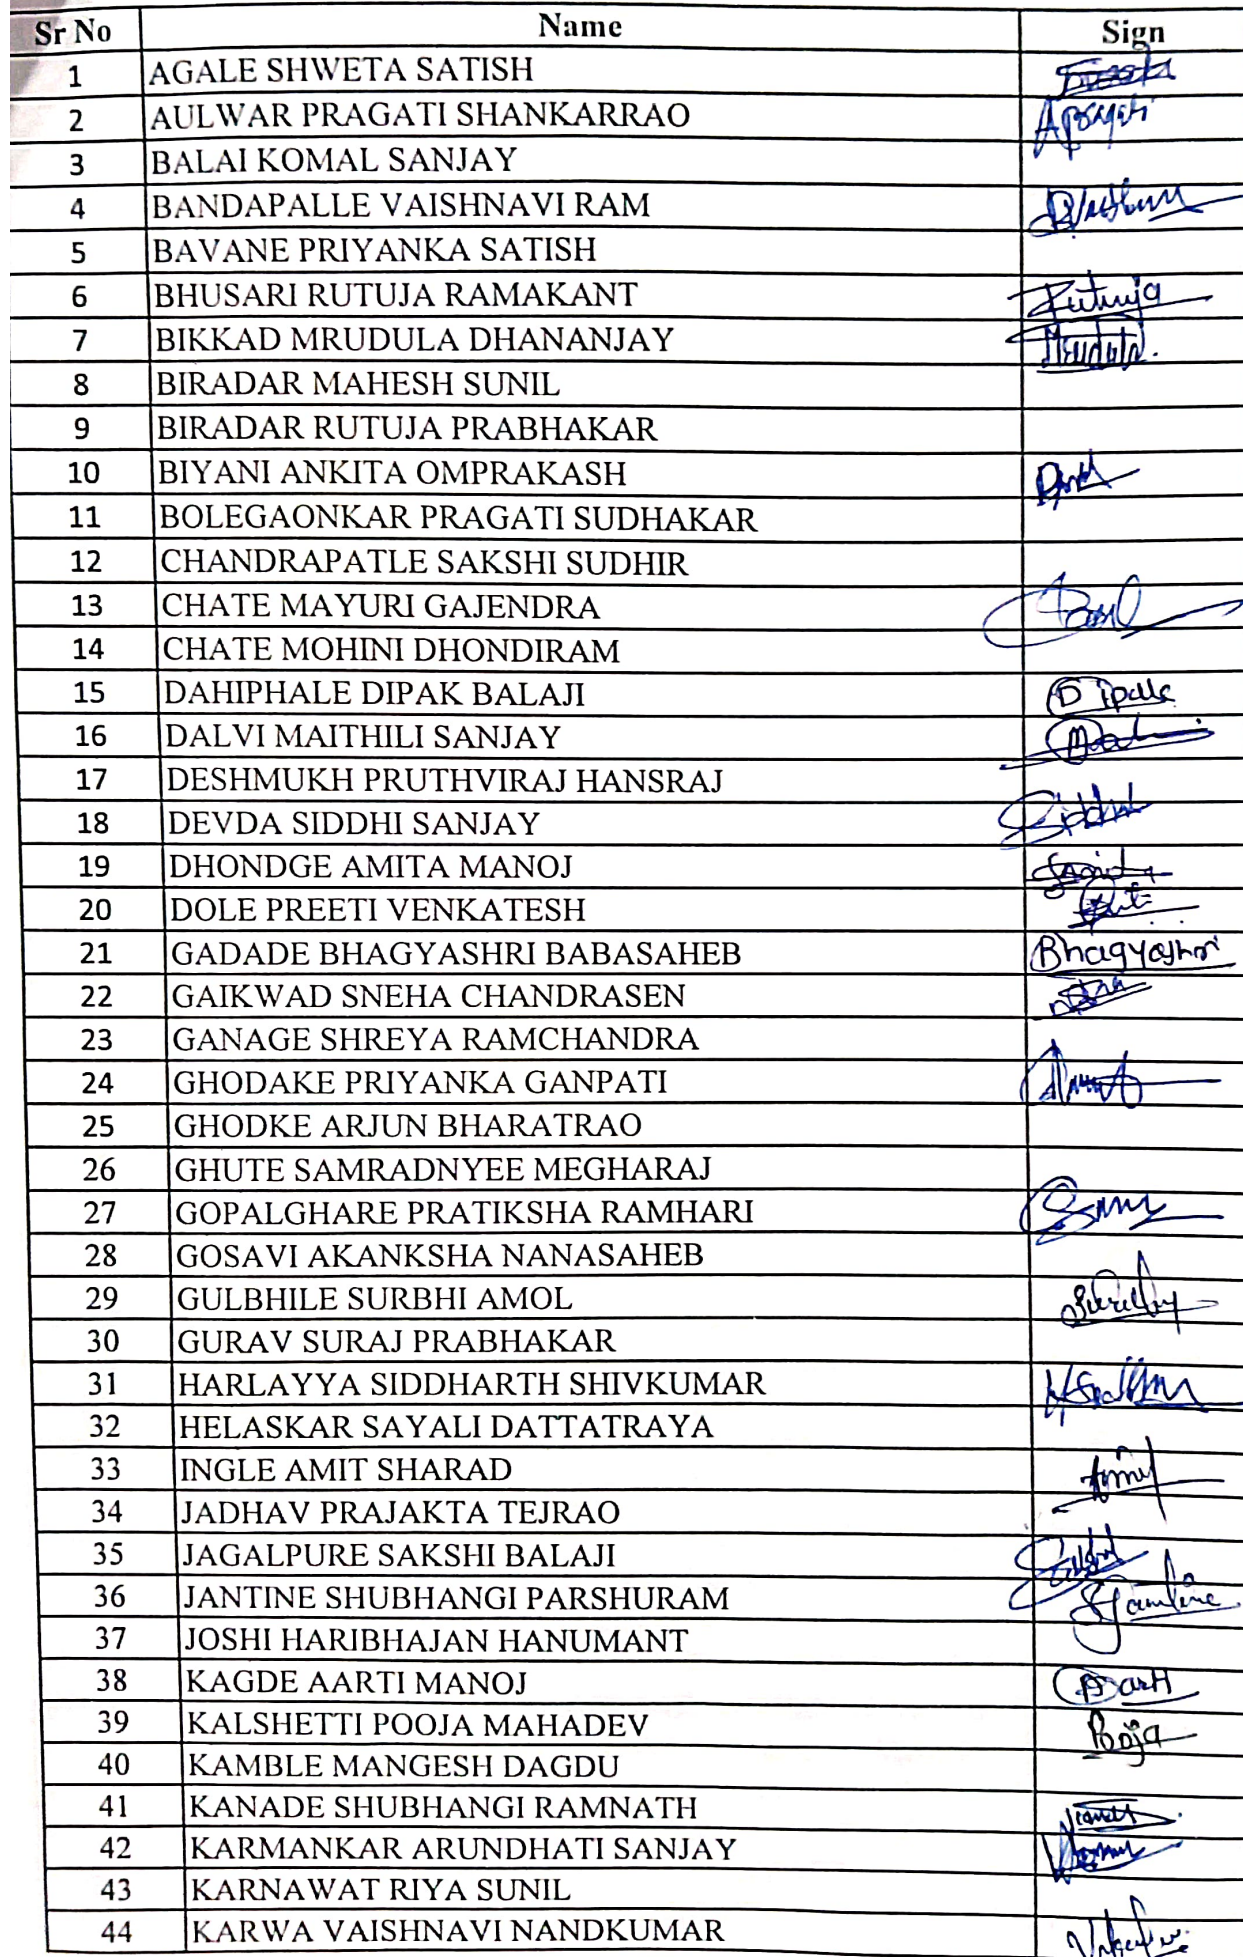 Sr No Name Sign
1 AGALE SHWETA SATISH
2 AULWAR PRAGATI SHANKARRAO Apragati
3 BALAI KOMAL SANJAY
4 BANDAPALLE VAISHNAVI RAM
5 BAVANE PRIYANKA SATISH
6 BHUSARI RUTUJA RAMAKANT Rutuja
7 BIKKAD MRUDULA DHANANJAY Mrudula
8 BIRADAR MAHESH SUNIL
9 BIRADAR RUTUJA PRABHAKAR
10 BIYANI ANKITA OMPRAKASH
11 BOLEGAONKAR PRAGATI SUDHAKAR
12 CHANDRAPATLE SAKSHI SUDHIR
13 CHATE MAYURI GAJENDRA
14 CHATE MOHINI DHONDIRAM
15 DAHIPHALE DIPAK BALAJI
16 DALVI MAITHILI SANJAY
17 DESHMUKH PRUTHVIRAJ HANSRAJ
18 DEVDA SIDDHI SANJAY Siddhi
19 DHONDGE AMITA MANOJ
20 DOLE PREETI VENKATESH
21 GADADE BHAGYASHRI BABASAHEB Bhagyashri
22 GAIKWAD SNEHA CHANDRASEN
23 GANAGE SHREYA RAMCHANDRA
24 GHODAKE PRIYANKA GANPATI
25 GHODKE ARJUN BHARATRAO
26 GHUTE SAMRADNYEE MEGHARAJ
27 GOPALGHARE PRATIKSHA RAMHARI
28 GOSAVI AKANKSHA NANASAHEB
29 GULBHILE SURBHI AMOL
30 GURAV SURAJ PRABHAKAR
31 HARLAYYA SIDDHARTH SHIVKUMAR
32 HELASKAR SAYALI DATTATRAYA
33 INGLE AMIT SHARAD
34 JADHAV PRAJAKTA TEJRAO
35 JAGALPURE SAKSHI BALAJI
36 JANTINE SHUBHANGI PARSHURAM SJantine
37 JOSHI HARIBHAJAN HANUMANT
38 KAGDE AARTI MANOJ Aarti
39 KALSHETTI POOJA MAHADEV Pooja
40 KAMBLE MANGESH DAGDU
41 KANADE SHUBHANGI RAMNATH
42 KARMANKAR ARUNDHATI SANJAY
43 KARNAWAT RIYA SUNIL
44 KARWA VAISHNAVI NANDKUMAR